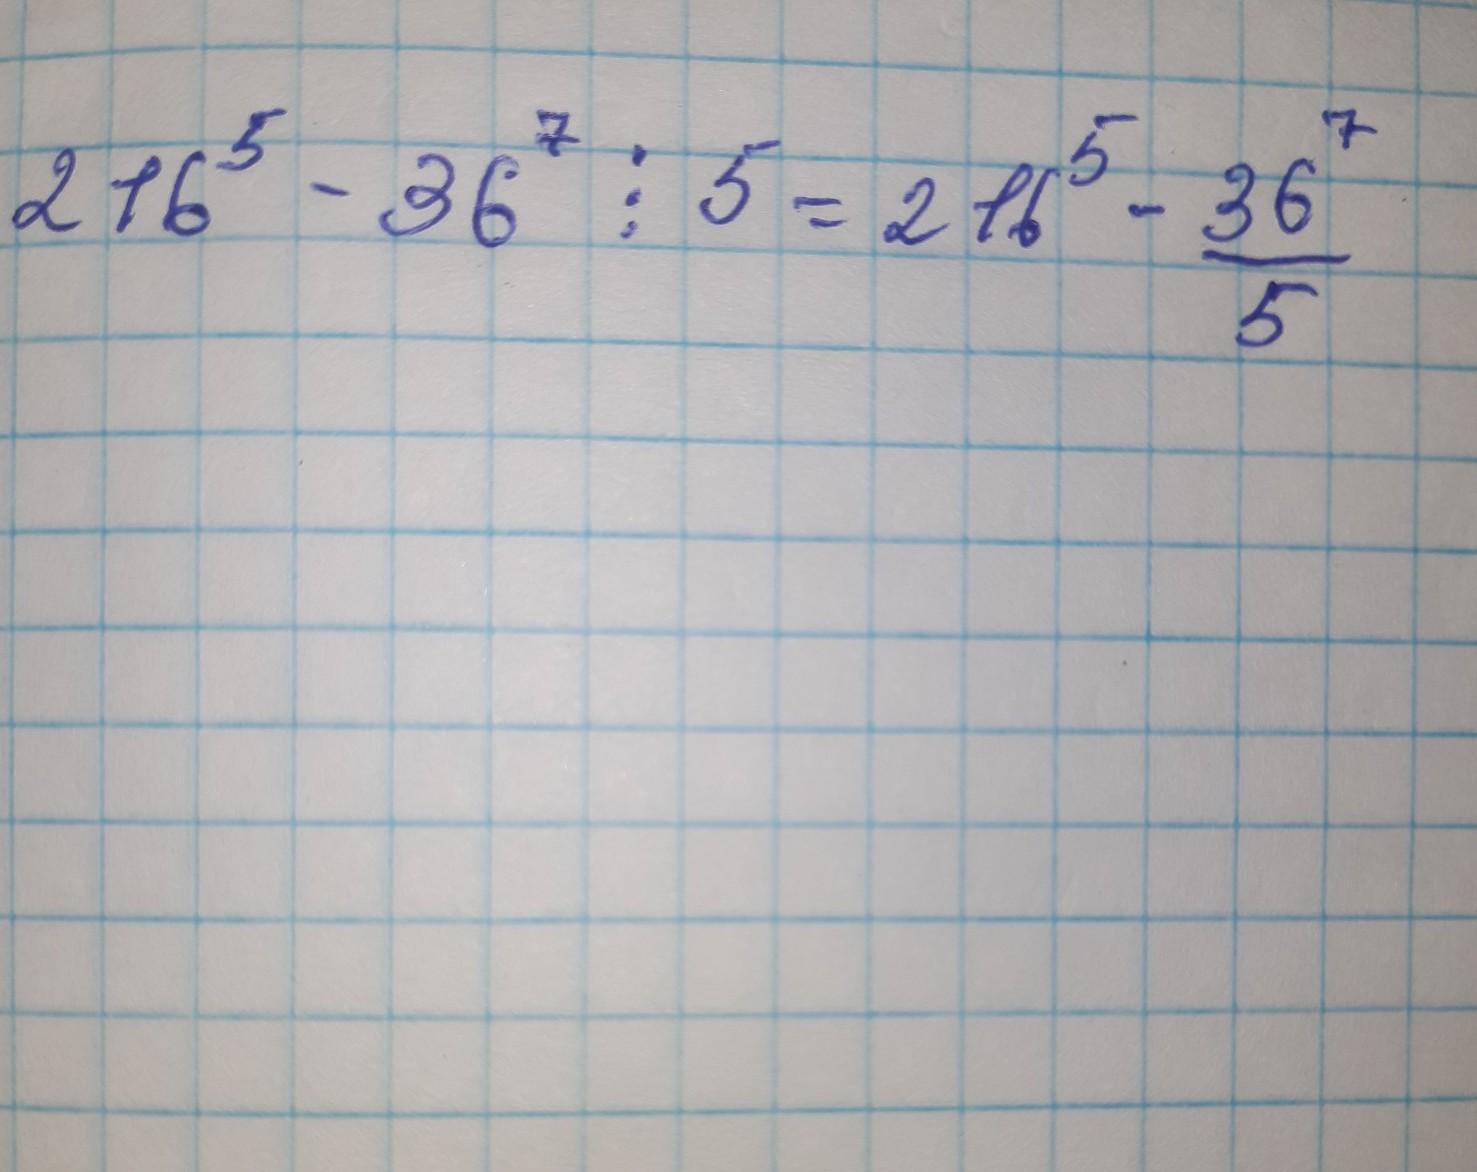 216⁵ - 36⁷ : 5 = 216⁵ - 36⁷/5